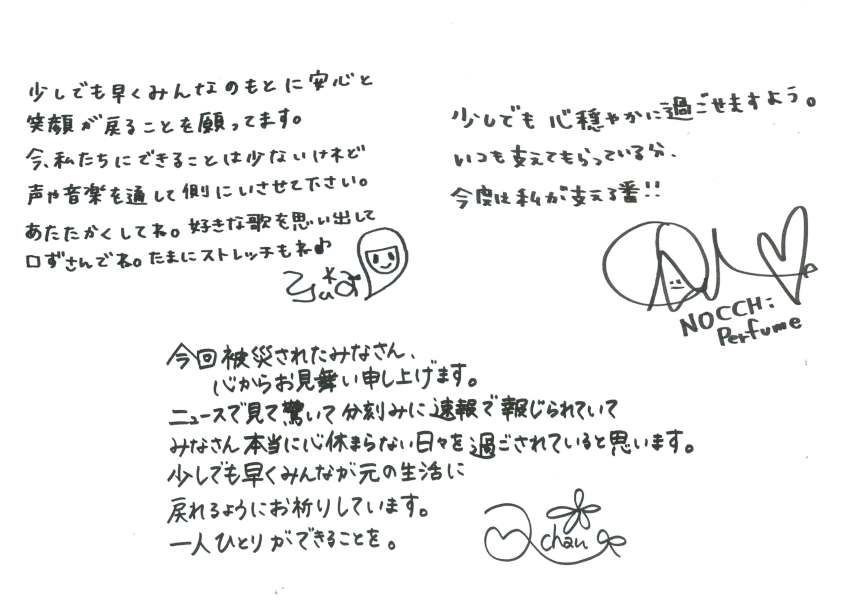 少しでも早くみんなのもとに安心と
笑顔が戻ることを願ってます。
今、私たちにできることは少ないけれど
声や音楽を通して側にいさせて下さい。
あたたかくしてね。好きな歌を思い出して
口ずさんでね。たまにストレッチもね♪
少しでも心穏やかに過ごせますよう。
いつも支えてもらっている分、
今度は私が支える番!!
NOCCHi
Perfume
今回被災されたみなさん、
心からお見舞い申し上げます。
ニュースで見て驚いて分刻みに速報で報じられていて
みなさん本当に心休まらない日々を過ごされていると思います。
少しでも早くみんなが元の生活に
戻れるようにお祈りしています。
一人ひとりができることを。
chan